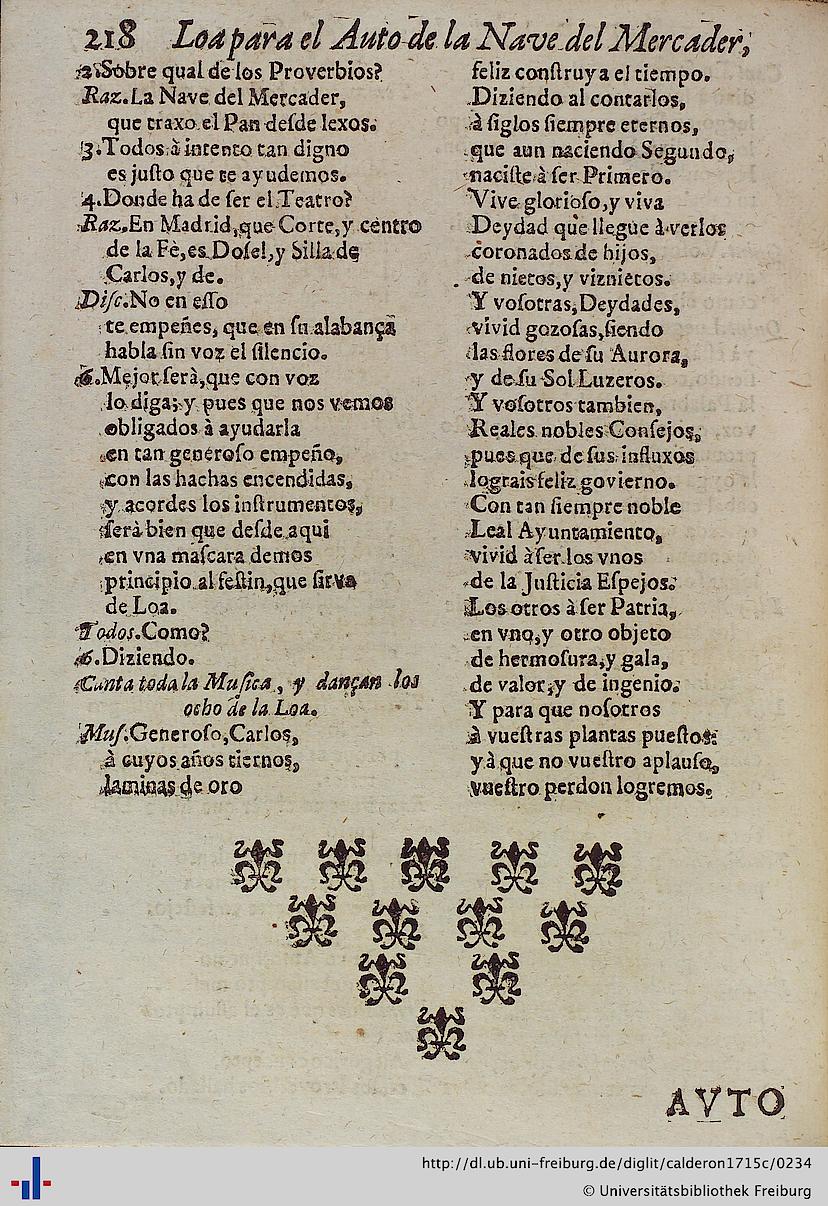 218 Loa para el Auto de la Nave del Mercader,
2. Sobre qual de los Proverbios?
Raz. La Nave del Mercader,
que traxo el Pan desde lexos.
3. Todos à intento tan digno
es justo que te ayudemos.
4. Donde ha de ser el Teatro?
Raz. En Madrid, que Corte, y centro
de la Fè, es Dosel, y Silla de
Carlos, y de.
Disc. No en esso
te empeñes, que en su alabança
habla sin voz el silencio.
6. Mejor serà, que con voz
lo diga; y pues que nos vemos
obligados à ayudarla
en tan generoso empeño,
con las hachas encendidas,
y acordes los instrumentos,
serà bien que desde aqui
en vna mascara demos
principio al festin, que sirva
de Loa.
Todos. Como?
6. Diziendo.
Canta toda la Musica, y dançan los
ocho de la Loa.
Mus. Generoso, Carlos,
à cuyos años tiernos,
laminas de oro
feliz construya el tiempo.
Diziendo al contarlos,
à siglos siempre eternos,
que aun naciendo Segundo,
naciste à ser Primero.
Vive glorioso, y viva
Deydad que llegue à verlos
coronados de hijos,
de nietos, y viznietos.
Y vosotras, Deydades,
vivid gozosas, siendo
las flores de su Aurora,
y de su Sol Luzeros.
Y vosotros tambien,
Reales nobles Consejos,
pues que de sus influxos
lograis feliz govierno.
Con tan siempre noble
Leal Ayuntamiento,
vivid à ser los vnos
de la Justicia Espejos.
Los otros à ser Patria,
en vno, y otro objeto
de hermosura, y gala,
de valor, y de ingenio.
Y para que nosotros
à vuestras plantas puestos:
yà que no vuestro aplauso,
vuestro perdon logremos.
AVTO
http://dl.ub.uni-freiburg.de/diglit/calderon1715c/0234
© Universitätsbibliothek Freiburg